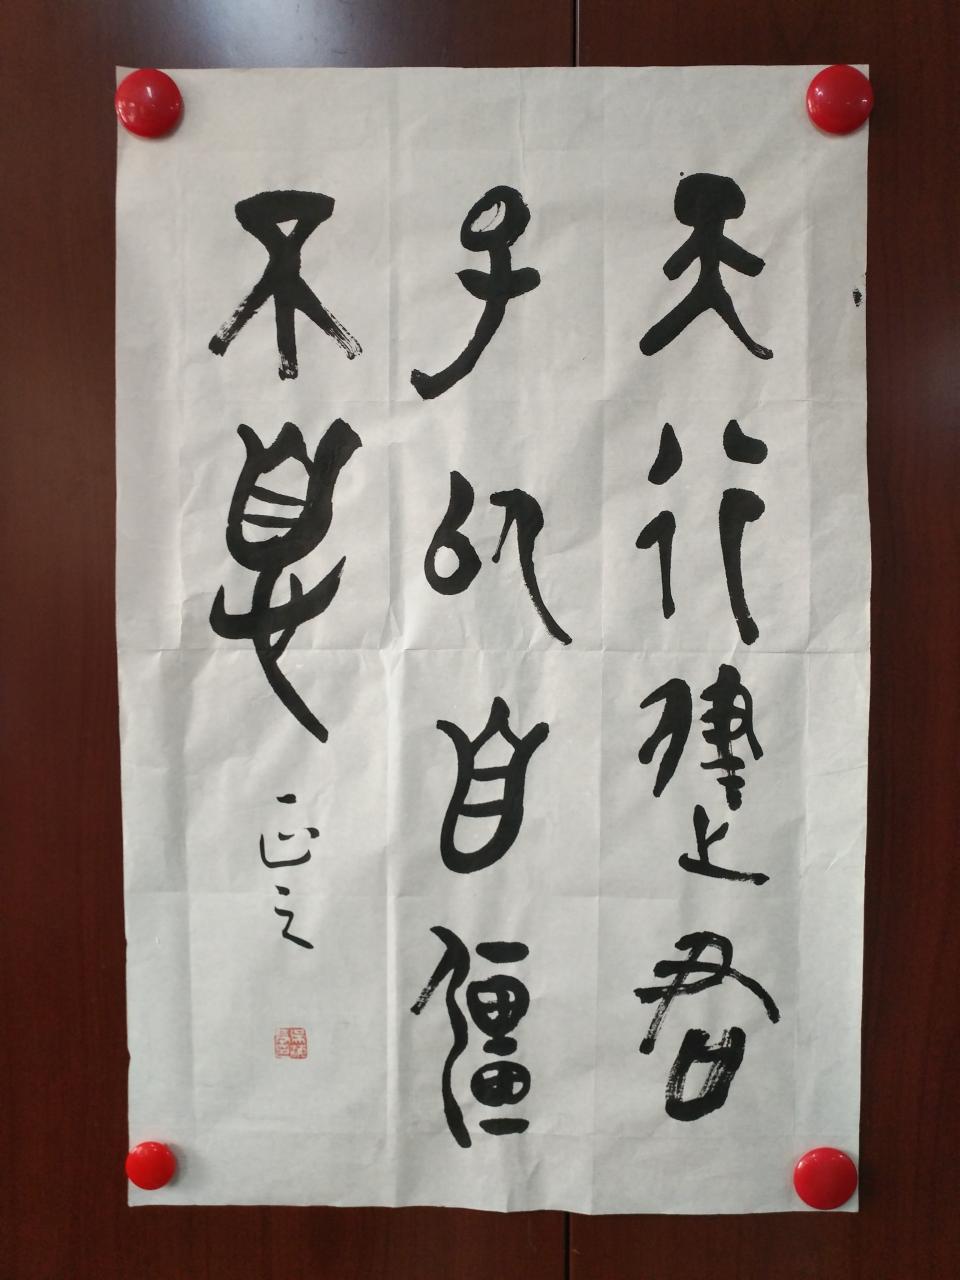 天行健君
子以自彊
不息
正之